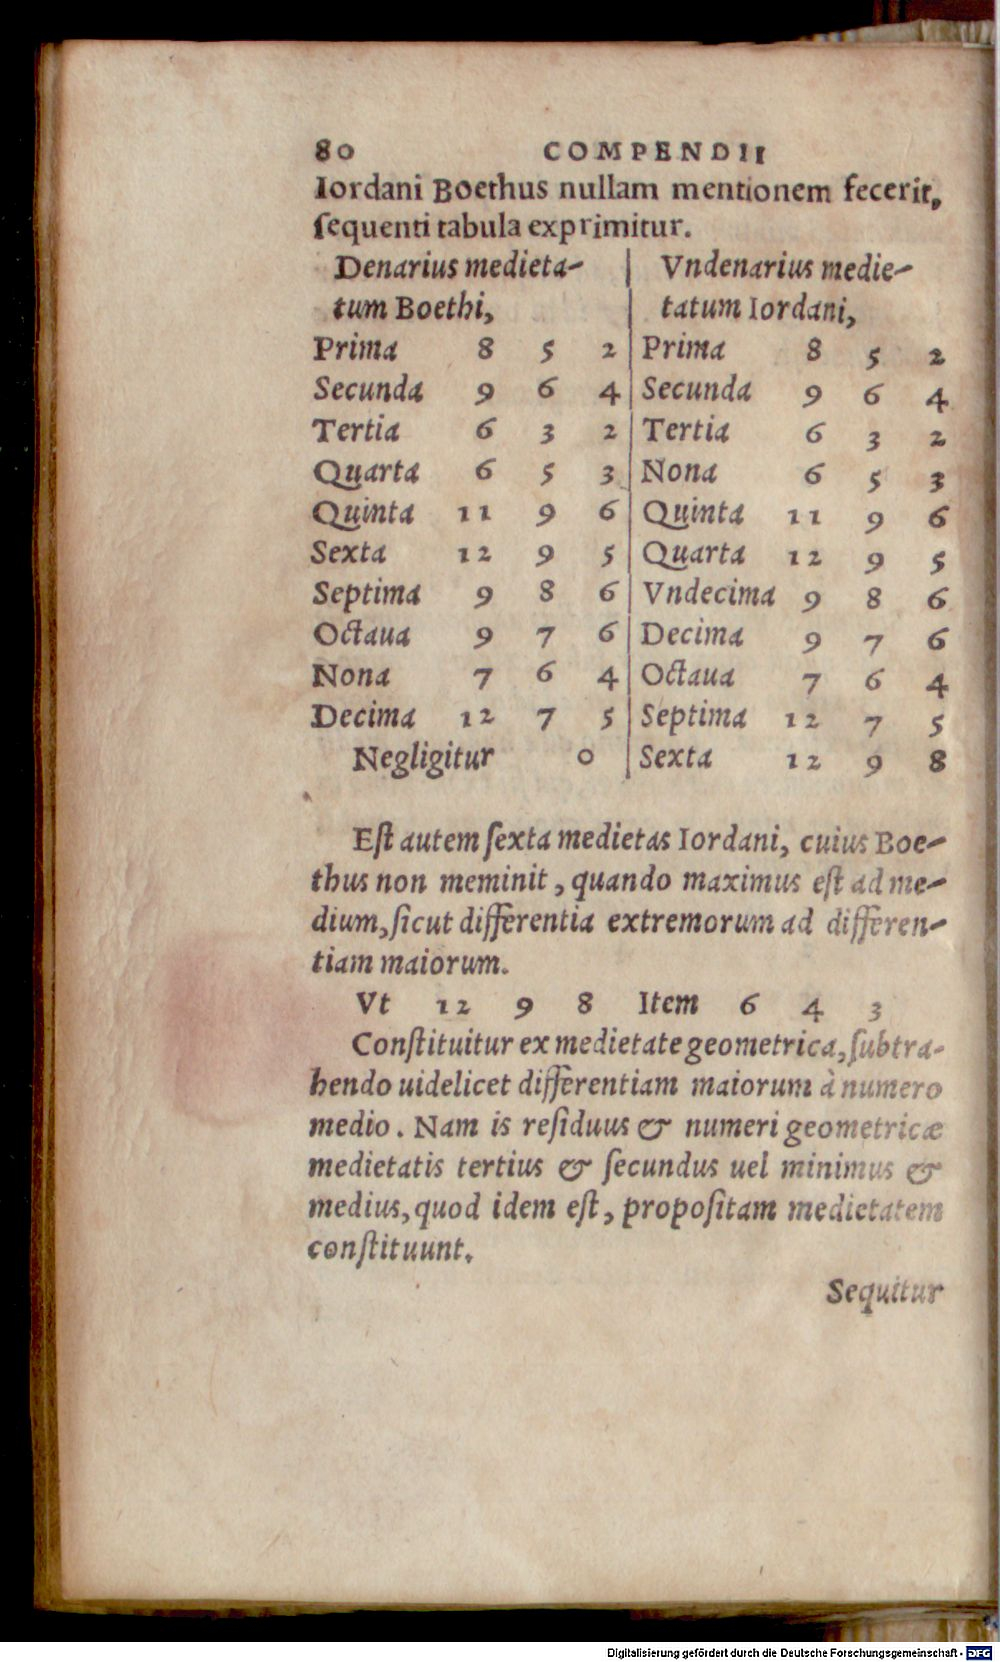 80 COMPENDII
Iordani Boethus nullam mentionem fecerit,
ſequenti tabula exprimitur.
Denarius medieta- | Vndenarius medie-
tum Boethi, | tatum Iordani,
Prima 8 5 2 | Prima 8 5 2
Secunda 9 6 4 | Secunda 9 6 4
Tertia 6 3 2 | Tertia 6 3 2
Quarta 6 5 3 | Nona 6 5 3
Quinta 11 9 6 | Quinta 11 9 6
Sexta 12 9 5 | Quarta 12 9 5
Septima 9 8 6 | Vndecima 9 8 6
Octaua 9 7 6 | Decima 9 7 6
Nona 7 6 4 | Octaua 7 6 4
Decima 12 7 5 | Septima 12 7 5
Negligitur 0 | Sexta 12 9 8
Eſt autem ſexta medietas Iordani, cuius Boe-
thus non meminit, quando maximus eſt ad me-
dium, ſicut differentia extremorum ad differen-
tiam maiorum.
Vt 12 9 8 Item 6 4 3
Conſtituitur ex medietate geometrica, ſubtra-
hendo uidelicet differentiam maiorum à numero
medio. Nam is reſiduus & numeri geometricæ
medietatis tertius & ſecundus uel minimus &
medius, quod idem eſt, propoſitam medietatem
conſtituunt.
Sequitur
Digitalisierung gefördert durch die Deutsche Forschungsgemeinschaft - DFG